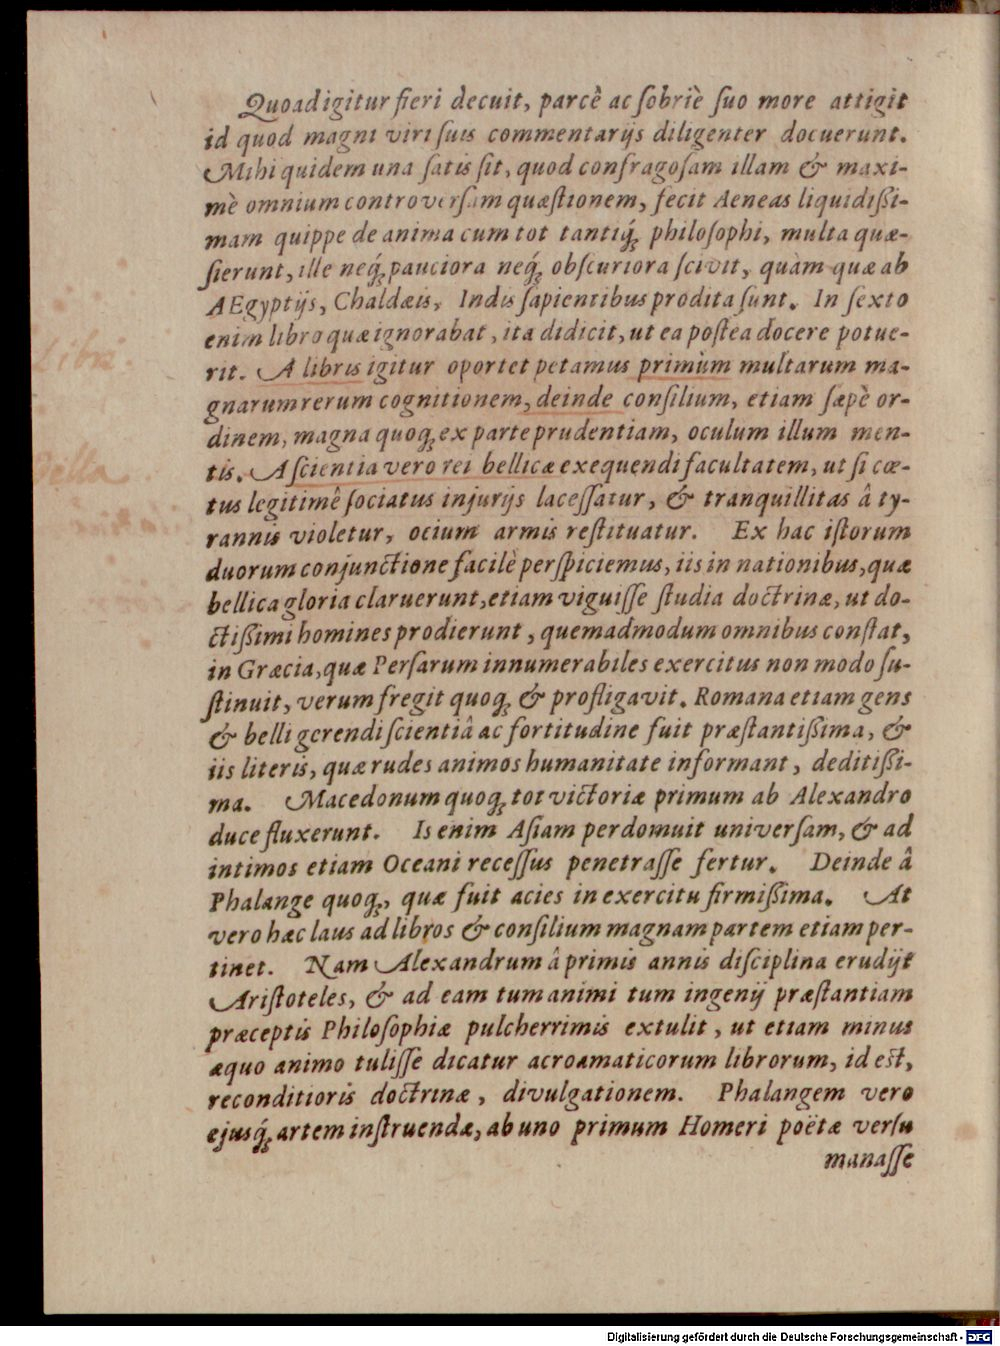 Quoad igitur fieri decuit, parcè ac ſobriè ſuo more attigit
id quod magni viri ſuis commentarijs diligenter docuerunt.
Mihi quidem una ſatis ſit, quod confragoſam illam & maxi-
mè omnium controverſam quæſtionem, fecit Aeneas liquidißi-
mam quippe de anima cum tot tantiq́ꝫ philoſophi, multa quæ-
ſierunt, ille neq́ꝫ pauciora neq́ꝫ obſcuriora ſcivit, quàm quæ ab
AEgyptijs, Chaldæis, Indis ſapientibus prodita ſunt. In ſexto
enim libro quæ ignorabat, ita didicit, ut ea poſtea docere potue-
rit. A libris igitur oportet petamus primùm multarum ma-
gnarum rerum cognitionem, deinde conſilium, etiam ſæpè or-
dinem, magna quoqꝫ ex parte prudentiam, oculum illum men-
tis. A ſcientia vero rei bellicæ exequendi facultatem, ut ſi cœ-
tus legitimê ſociatus injurijs laceſſatur, & tranquillitas â ty-
rannis violetur, ocium armis reſtituatur. Ex hac iſtorum
duorum conjunctione facilè perſpiciemus, iis in nationibus, quæ
bellica gloria claruerunt, etiam viguiſſe ſtudia doctrinæ, ut do-
ctißimi homines prodierunt, quemadmodum omnibus conſtat,
in Græcia, quæ Perſarum innumerabiles exercitus non modo ſu-
ſtinuit, verum fregit quoqꝫ & profligavit. Romana etiam gens
& belli gerendi ſcientiâ ac fortitudine fuit præſtantißima, &
iis literis, quæ rudes animos humanitate informant, deditißi-
ma. Macedonum quoqꝫ tot victoriæ primum ab Alexandro
duce fluxerunt. Is enim Aſiam perdomuit univerſam, & ad
intimos etiam Oceani receſſus penetraſſe fertur. Deinde â
Phalange quoqꝫ, quæ fuit acies in exercitu firmißima. At
vero hæc laus ad libros & conſilium magnam partem etiam per-
tinet. Nam Alexandrum â primis annis diſciplina erudijt
Ariſtoteles, & ad eam tum animi tum ingenij præſtantiam
præceptis Philoſophiæ pulcherrimis extulit, ut etiam minus
æquo animo tuliſſe dicatur acroamaticorum librorum, id eſt,
reconditioris doctrinæ, divulgationem. Phalangem vero
ejusq́ꝫ artem inſtruendæ, ab uno primum Homeri poëtæ verſu
manaſſe
Libri
Digitalisierung gefördert durch die Deutsche Forschungsgemeinschaft - DFG